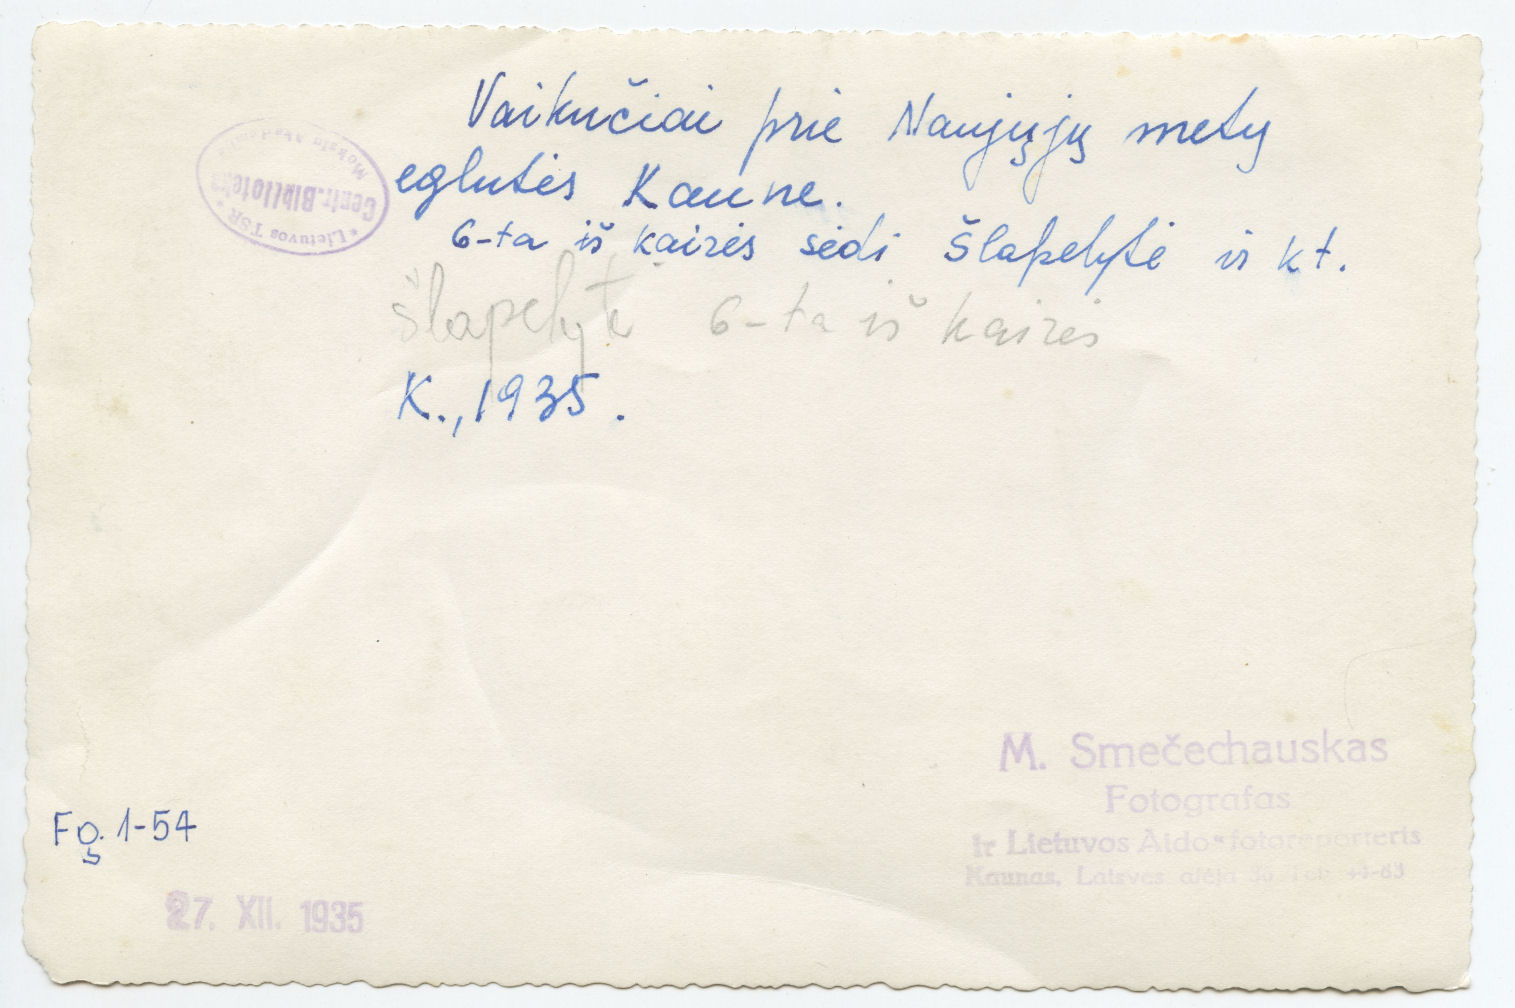 Vaikučiai prie Naujųjų metų
eglutės Kaune.
6-ta iš kairės sėdi Šlapelytė ir kt.
Šlapelytė 6-ta iš kairės
K., 1935.
* Lietuvos TSR *
Centr. Biblioteka
Mokslų
M. Smečechauskas
Fotografas
ir Lietuvos Aido" fotoreporteris
Kaunas, Laisvės alėja Tel. 44-83
Fg. 1-54
27. XII. 1935